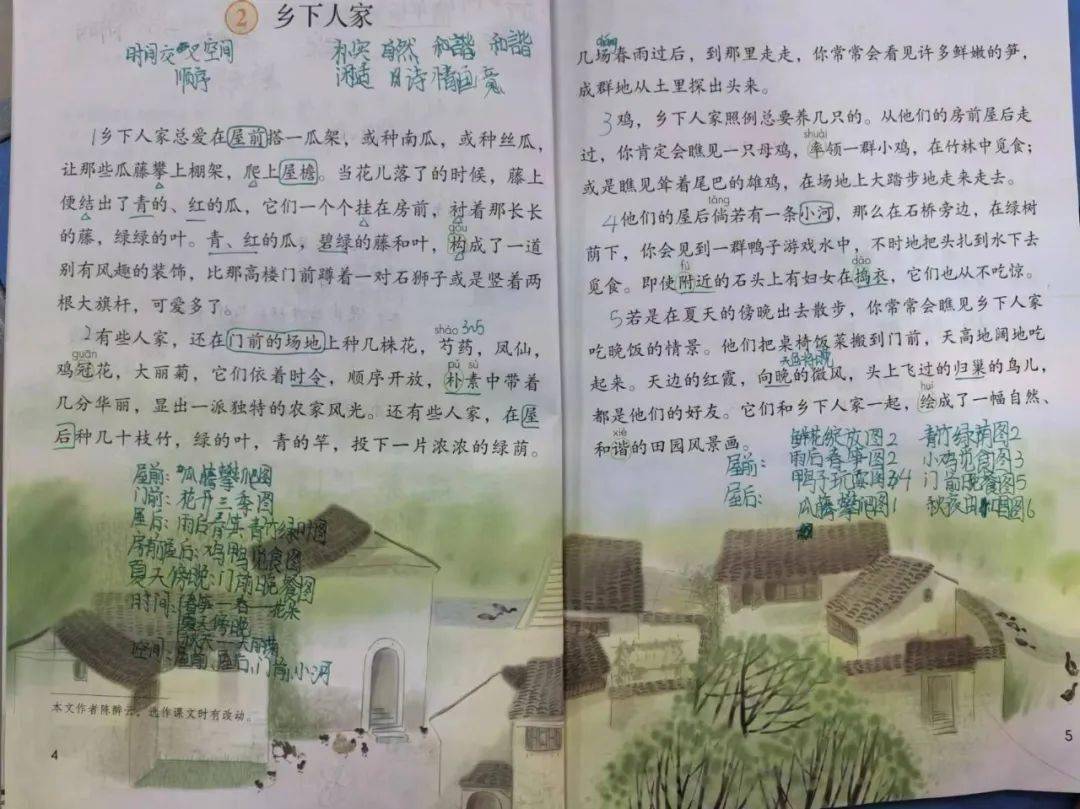 2 乡下人家
时间交叉空间
顺序
朴实 自然 和谐 和谐
闲适 日 诗情画意
1乡下人家总爱在屋前搭一瓜架，或种南瓜，或种丝瓜，
让那些瓜藤攀上棚架，爬上屋檐。当花儿落了的时候，藤上
便结出了青的、红的瓜，它们一个个挂在房前，衬着那长长
的藤，绿绿的叶。青、红的瓜，碧绿的藤和叶，构成了一道
gòu
别有风趣的装饰，比那高楼门前蹲着一对石狮子或是竖着两
根大旗杆，可爱多了。
sháo 3~5
2有些人家，还在门前的场地上种几株花，芍药，凤仙，
guān pǔ sù
鸡冠花，大丽菊，它们依着时令，顺序开放，朴素中带着
几分华丽，显出一派独特的农家风光。还有些人家，在屋
后种几十枝竹，绿的叶，青的竿，投下一片浓浓的绿荫。
屋前：瓜藤攀爬图
门前：花开三季图
屋后：雨后春笋 青竹绿叶图
房前屋后：鸡鸭觅食图
夏天傍晚：门前晚餐图
时间：春笋—春—花朵
夏天傍晚
秋天—大丽菊
空间：屋前、屋后、门前、小河
本文作者陈醉云，选作课文时有改动。
4
cháng
几场春雨过后，到那里走走，你常常会看见许多鲜嫩的笋，
成群地从土里探出头来。
3鸡，乡下人家照例总要养几只的。从他们的房前屋后走
shuài
过，你肯定会瞧见一只母鸡，率领一群小鸡，在竹林中觅食；
或是瞧见耸着尾巴的雄鸡，在场地上大踏步地走来走去。
tǎng
4他们的屋后倘若有一条小河，那么在石桥旁边，在绿树
荫下，你会见到一群鸭子游戏水中，不时地把头扎到水下去
fù dǎo
觅食。即使附近的石头上有妇女在捣衣，它们也从不吃惊。
5若是在夏天的傍晚出去散步，你常常会瞧见乡下人家
吃晚饭的情景。他们把桌椅饭菜搬到门前，天高地阔地吃
起来。天边的红霞，向晚的微风，头上飞过的归巢的鸟儿，
huì
都是他们的好友。它们和乡下人家一起，绘成了一幅自然、
xié
和谐的田园风景画。
鲜花绽放图2 青竹绿荫图2
屋前：雨后春笋图2 小鸡觅食图3
鸭子玩图4 门前晚餐图5
屋后：瓜藤攀爬图1 秋夜图6
5